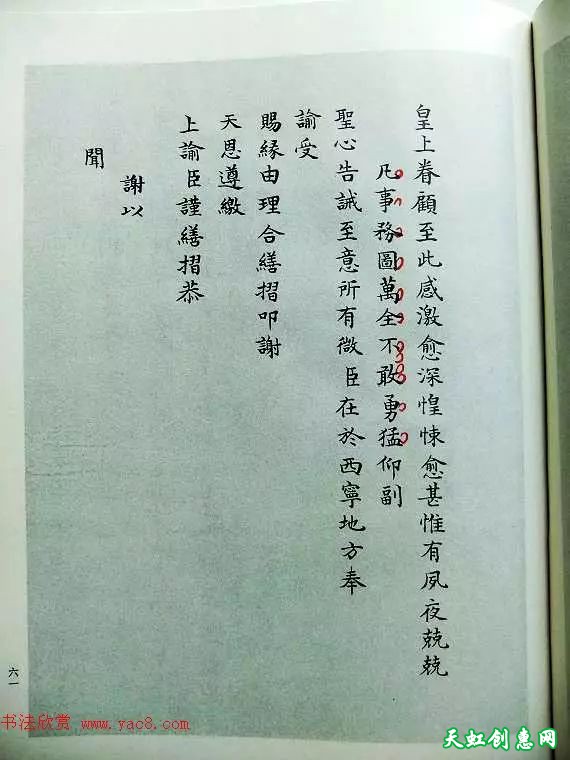 皇上眷顧至此感激愈深惶悚愈甚惟有夙夜兢兢
凡事務圖萬全不敢勇猛仰副
聖心告誡至意所有微臣在於西寧地方奉
諭受
賜緣由理合繕摺叩謝
天恩遵繳
上諭臣謹繕摺恭
謝以
聞
六一
书法欣赏 www.yac8.com
天虹创惠网